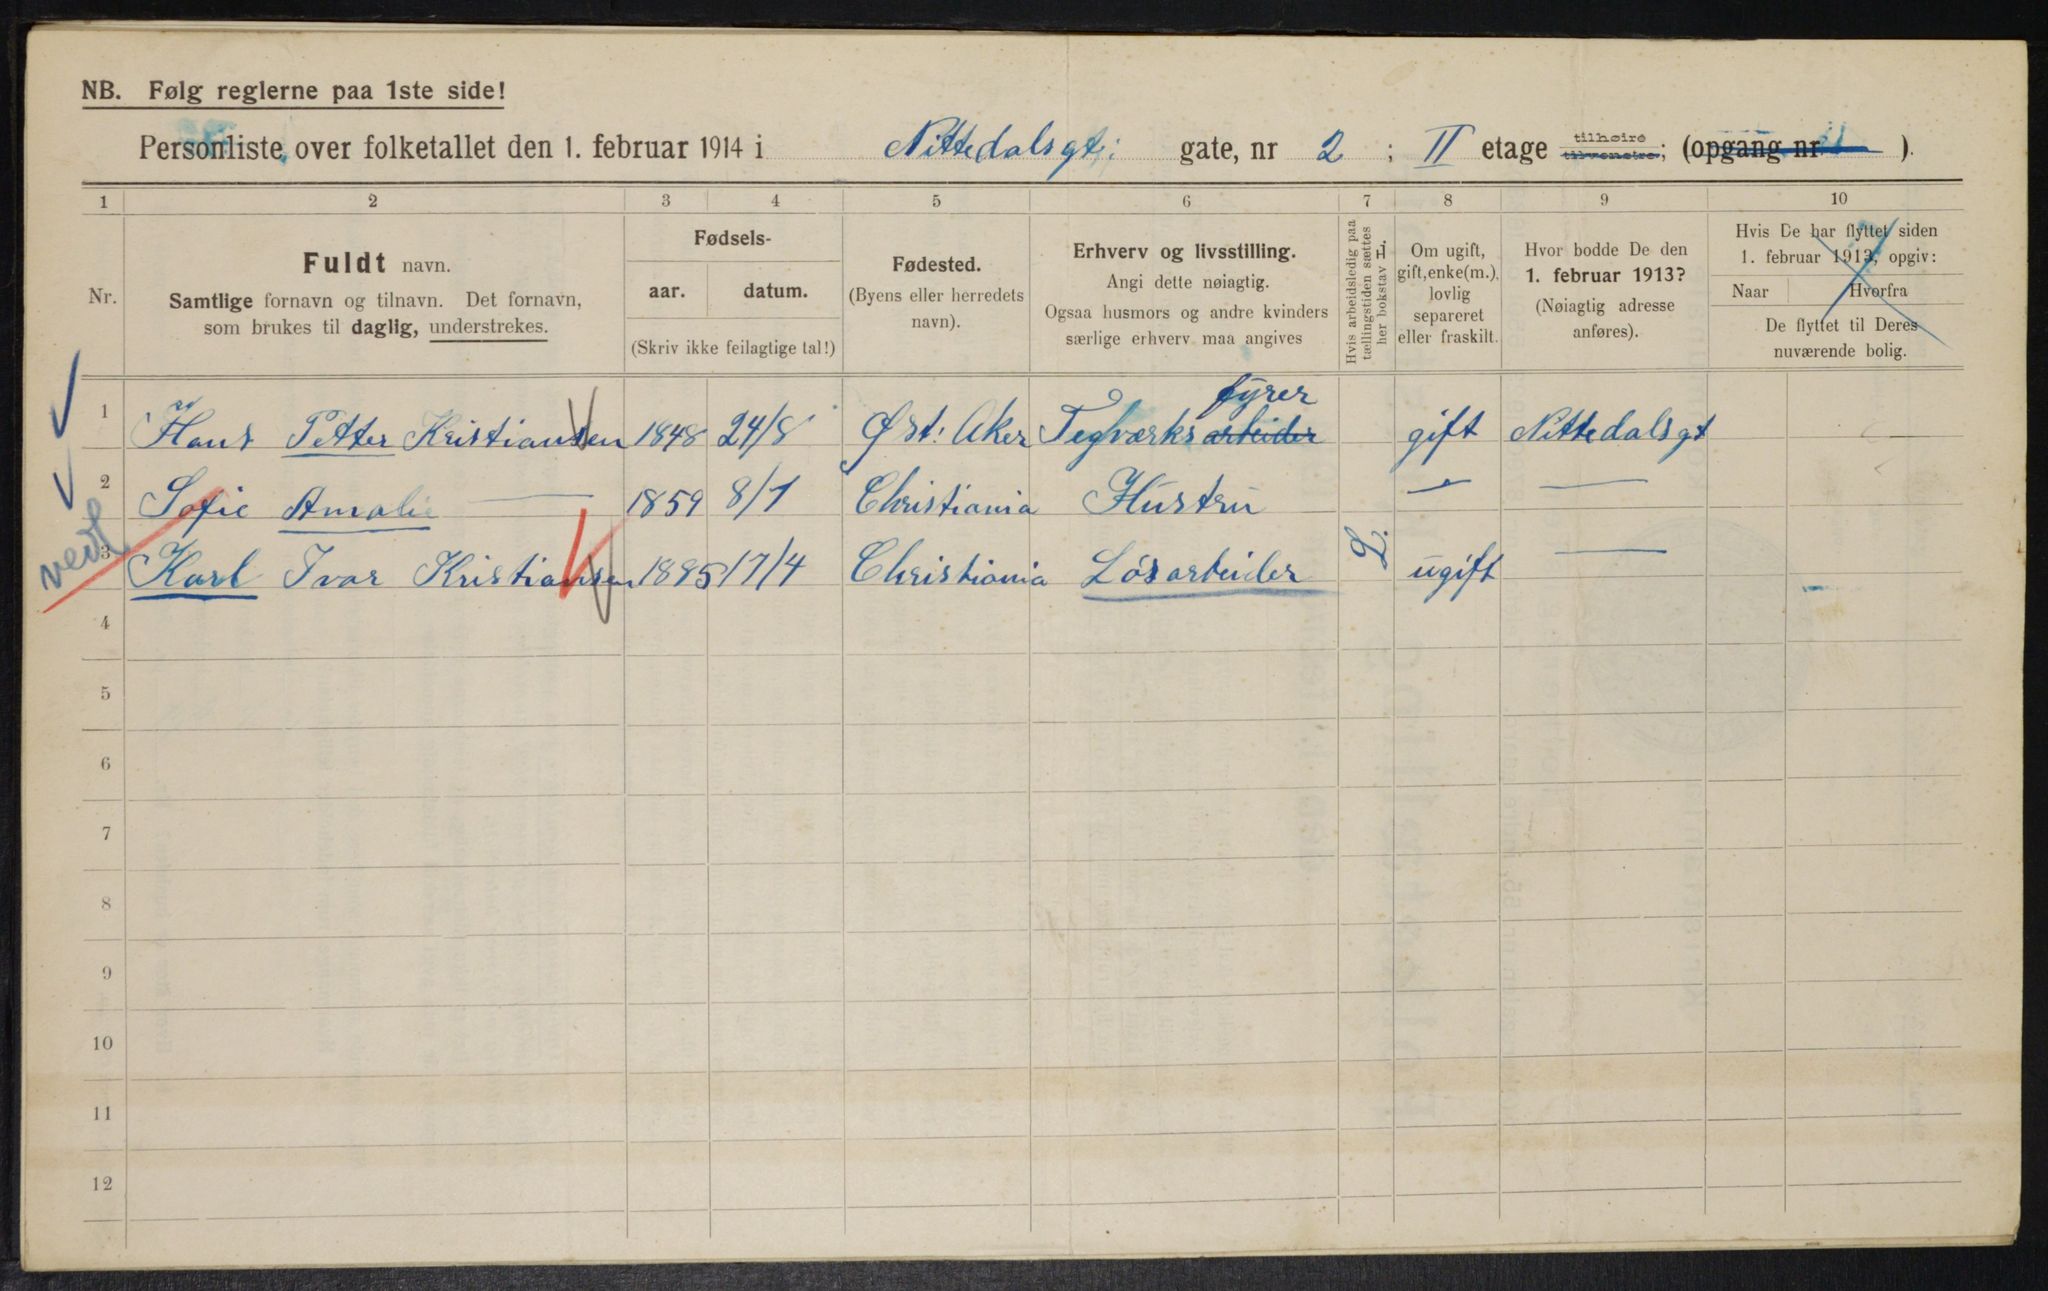 NB. Følg reglerne paa 1ste side!
Personliste over folketallet den 1. februar 1914 i Nittedalsgt: gate, nr 2 ; II etage tilhøire tilvenstre; (opgang nr ).
1 2 3 4 5 6 7 8 9 10
Nr.
Fuldt navn.
Samtlige fornavn og tilnavn. Det fornavn,
som brukes til daglig, understrekes.
Fødsels-
aar. datum.
(Skriv ikke feilagtige tal!)
Fødested.
(Byens eller herredets
navn).
Erhverv og livsstilling.
Angi dette nøiagtig.
Ogsaa husmors og andre kvinders
særlige erhverv maa angives
Hvis arbeidsledig paa
tællingstiden sættes
her bokstav L.
Om ugift,
gift, enke(m.),
lovlig
separeret
eller fraskilt.
Hvor bodde De den
1. februar 1913?
(Nøiagtig adresse
anføres).
Hvis De har flyttet siden
1. februar 1913, opgiv:
Naar Hvorfra
De flyttet til Deres
nuværende bolig.
fyrer
1 Hans Petter Kristiansen 1848 24/8 Øst: Aker Teglværksarbeider gift Nittedalsgt
2 Sofie Amalie — 1859 8/1 Christiania Hustru — —
3 Karl Ivar Kristiansen 1895 17/4 Christiania Løsarbeider L. ugift —
4
5
6
7
8
9
10
11
12